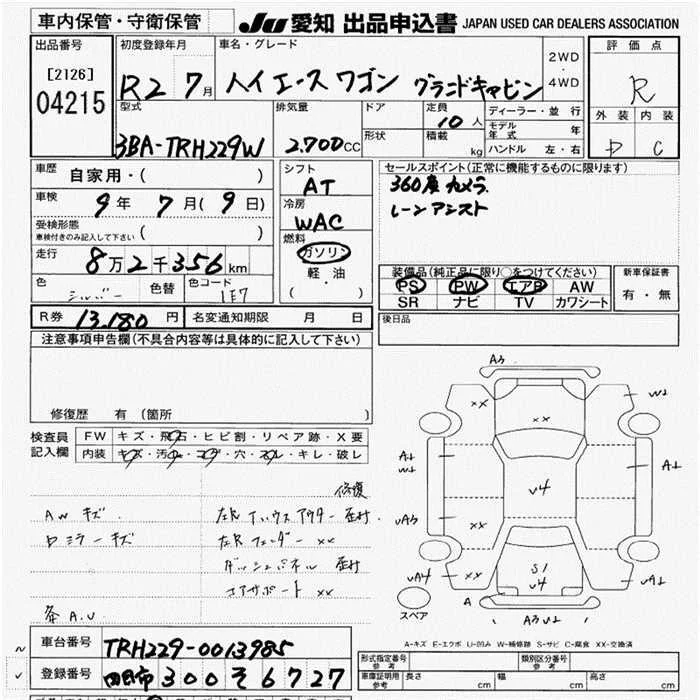 車内保管・守衛保管
JU 愛知 出品申込書 JAPAN USED CAR DEALERS ASSOCIATION
出品番号
[2126]
04215
初度登録年月
R2 7月
車名・グレード
ハイエース ワゴン グランドキャビン
2WD
・
4WD
評価点
R
型式
3BA-TRH229W
排気量
2,700CC
ドア
形状
定員
10人
積載
kg
ディーラー・並行
モデル年式 年
ハンドル 左・右
外装 内装
D C
車歴 自家用・( )
車検 9年 7月( 9日)
受検形態
車検付きのみ記入して下さい ( )
走行 8万2千356km
色 シルバー 色替 色コード 1E7
シフト
AT
冷房
WAC
燃料
ガソリン
軽油
・
( )
セールスポイント(正常に機能するものに限ります)
360度カメラ.
レーンアシスト
装備品(純正品に限り○をつけてください)
PS PW エアB AW
SR ナビ TV カワシート
新車保証書
有・無
R券 13,180円 名変通知期限 月 日
後日品
注意事項申告欄(不具合内容等は具体的に記入して下さい)
修復歴 有 (箇所 )
検査員記入欄
FW キズ・飛石・ヒビ割・リペア跡・X要
内装 キズ・汚れ・コゲ・穴・スレ・キレ・破レ
修復
AWキズ 左Rインハウスアウター 歪,付.
Dミラーキズ 左Rフェンダー xx
ダッシュパネル 歪,付
コアサポート xx
A.U
A3
xx
xx
W2
A1
W1
A1
V4
UA3
xx
UA4
xx
S1
V4
U2
A
A3 U2
スペア
A-キズ E-エクボ U-凹み W-補修跡 S-サビ C-腐食 XX-交換済
車台番号 TRH229-0013985
登録番号 四日市 300 そ 6727
形式指定番号
参考
類別区分番号
参考
車庫証明用
参考
長さ cm
幅 cm
高さ cm